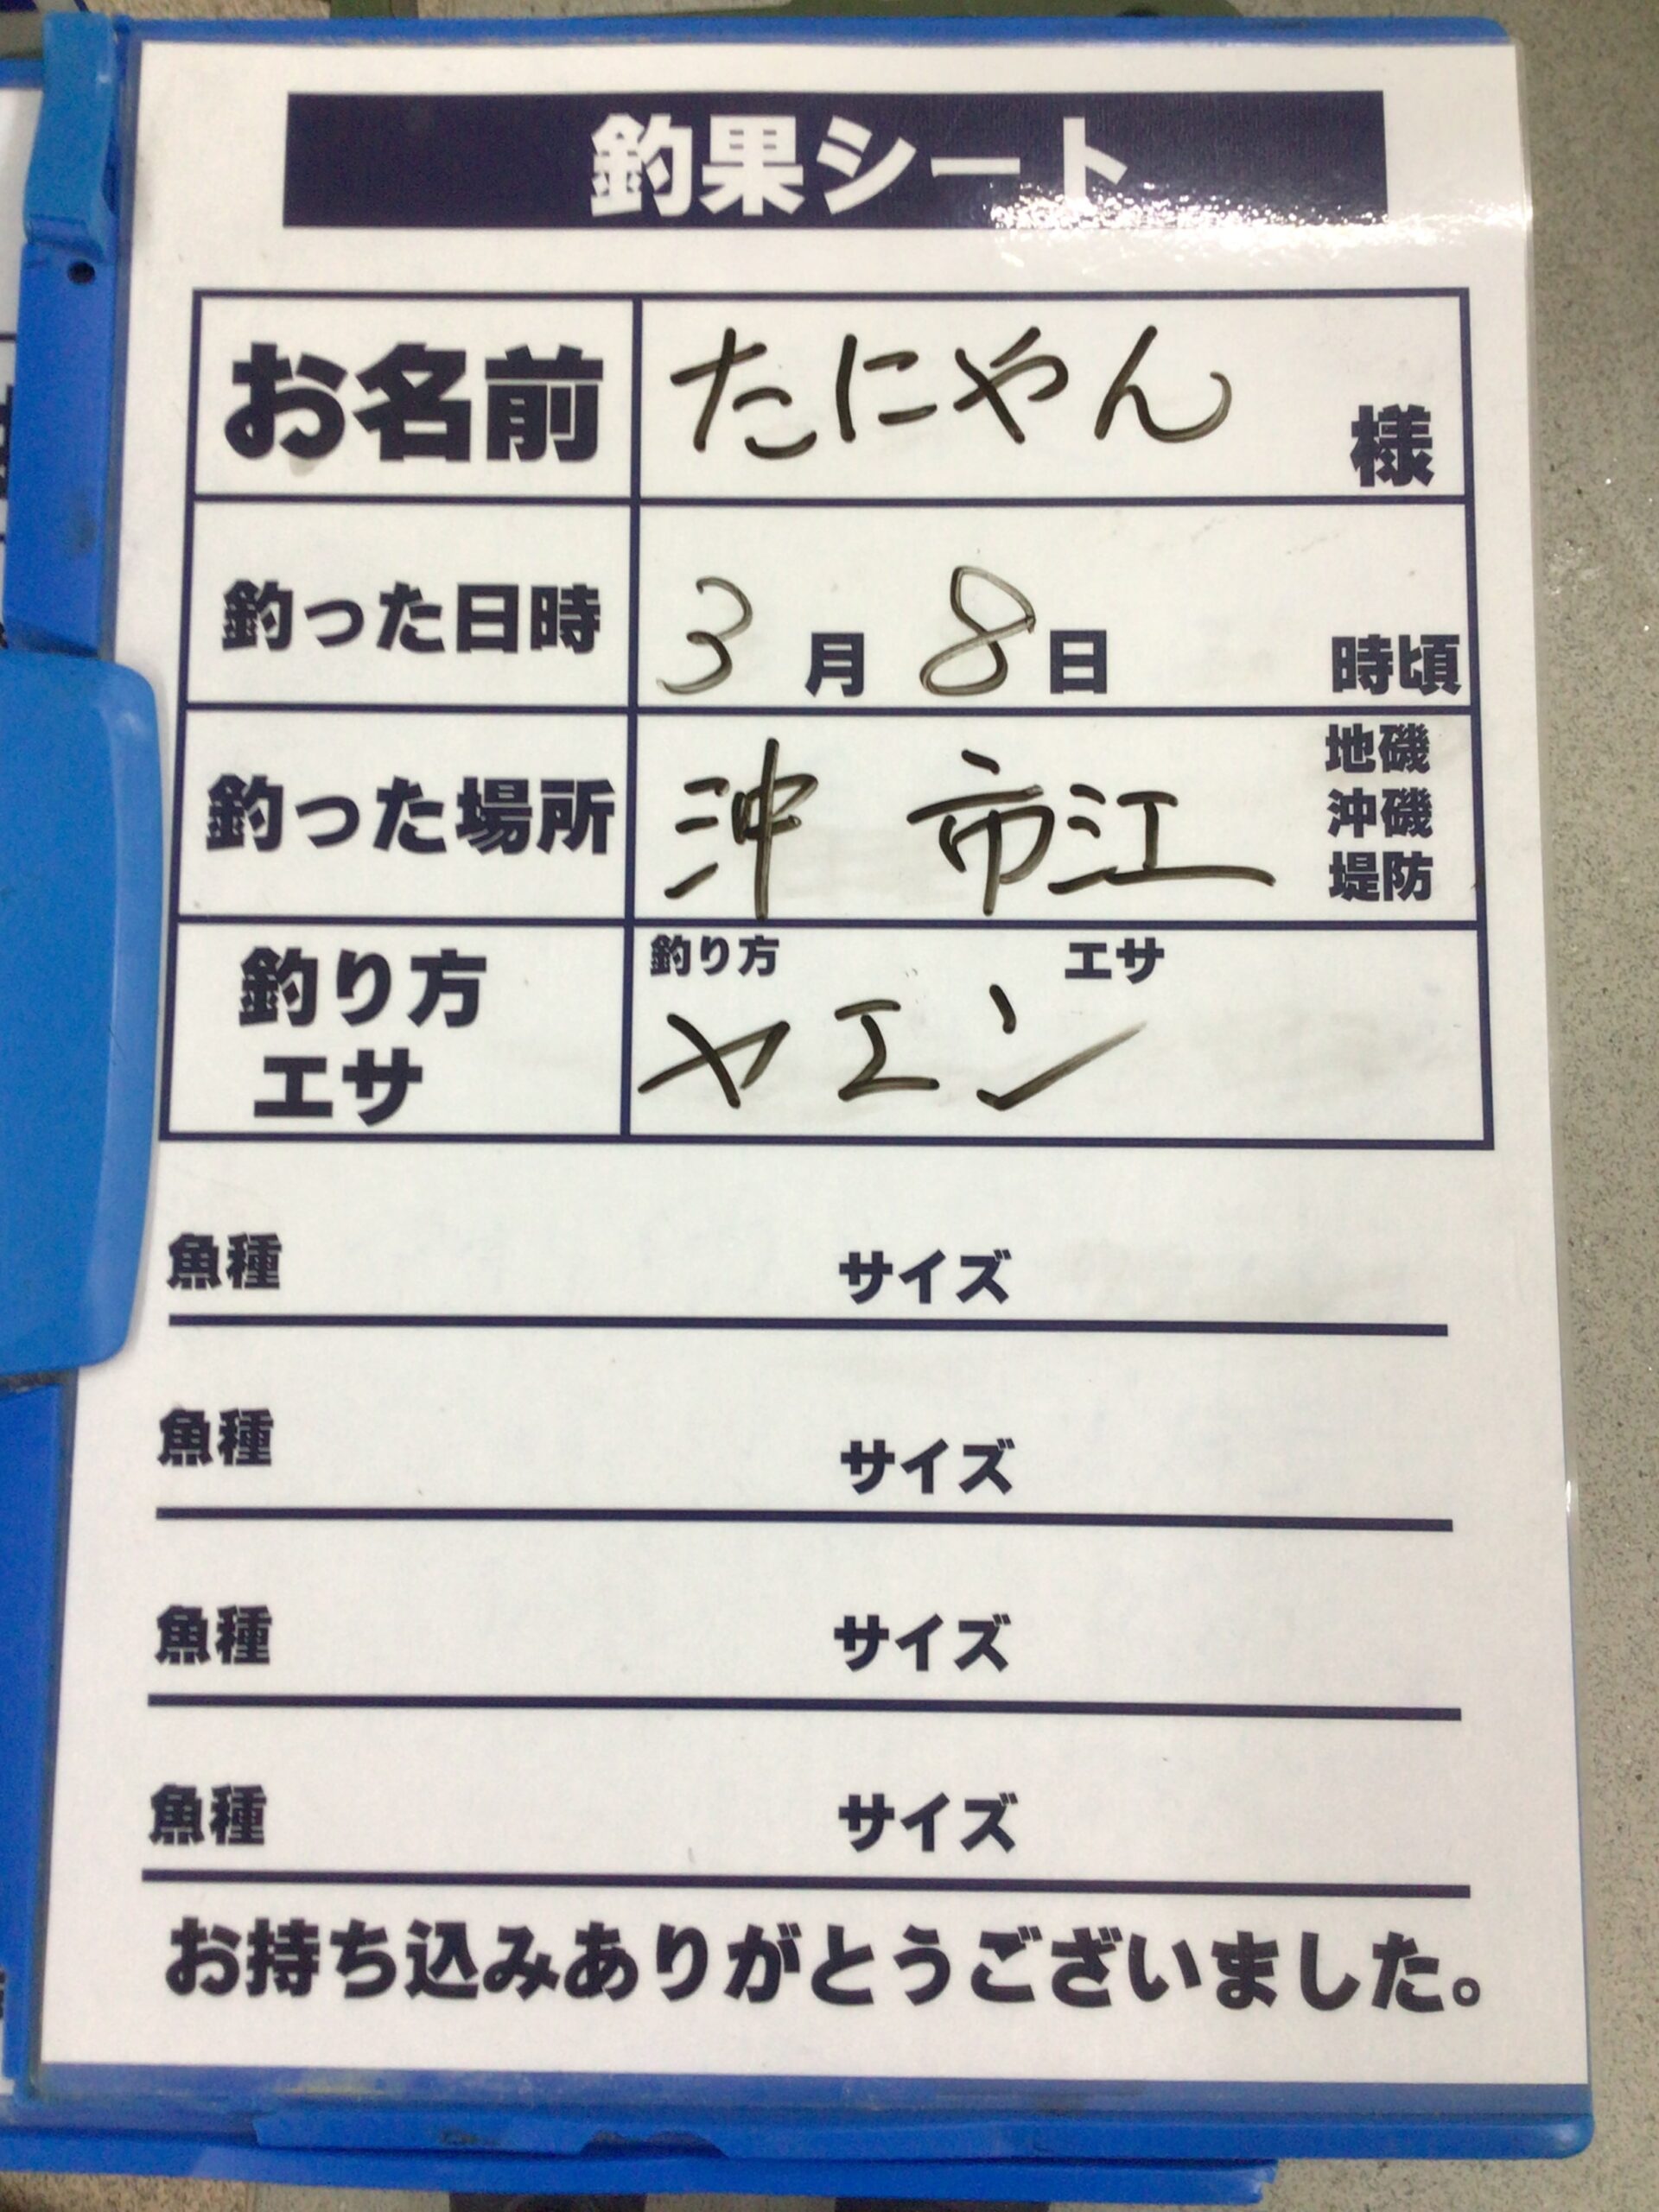 釣果シート
お名前 たにやん 様
釣った日時 3月8日 時頃
釣った場所 沖 市江 地磯
沖磯
堤防
釣り方 エサ
釣り方
エサ
ヤエン
魚種 サイズ
魚種 サイズ
魚種 サイズ
魚種 サイズ
お持ち込みありがとうございました。